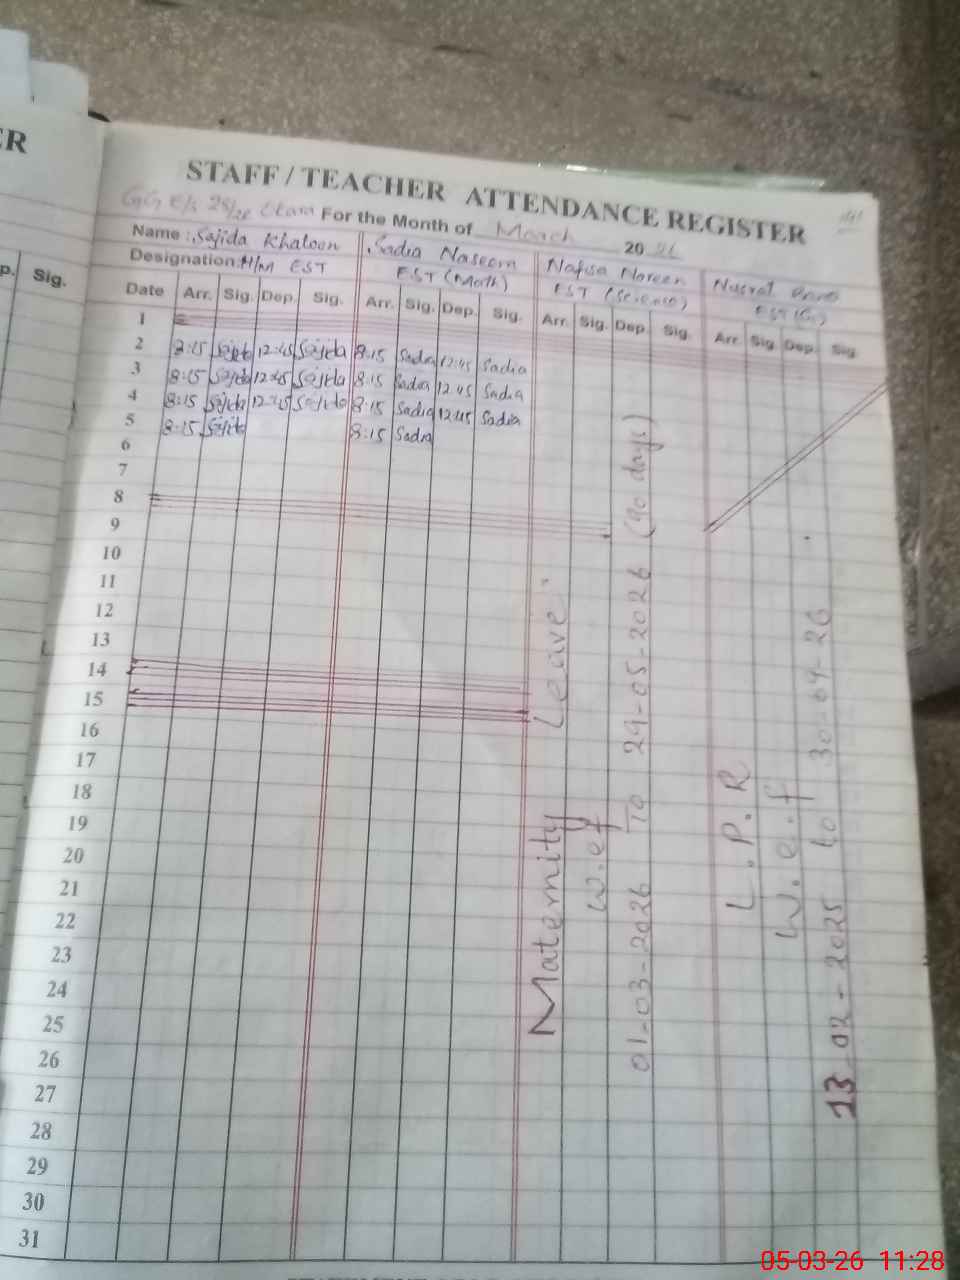 ER
STAFF / TEACHER ATTENDANCE REGISTER
GG E/S 28/2R Okara For the Month of March 2026
Name : Sajida Khatoon Sadia Naseem Nafisa Noreen Nusrat
Designation: H/M EST EST (Math) EST (Science) EST (G)
p. Sig.
Date Arr. Sig. Dep. Sig. Arr. Sig. Dep. Sig. Arr. Sig. Dep. Sig. Arr. Sig. Dep. Sig.
1
2 8:15 Sajida 12:45 Sajida 8:15 Sadia 12:45 Sadia
3 8:15 Sajida 12:45 Sajida 8:15 Sadia 12:45 Sadia
4 8:15 Sajida 12:45 Sajida 8:15 Sadia 12:45 Sadia
5 8:15 Sajida 8:15 Sadia
6
7
8
9
10
11
12
13
14
15
16
17
18
19
20
21
22
23
24
25
26
27
28
29
30
31
Maternity Leave
w.e.f
01-03-2026 To 29-05-2026 (90 days)
L.P.R
w.e.f
13-02-2025 to 30-09-26
05-03-26 11:28